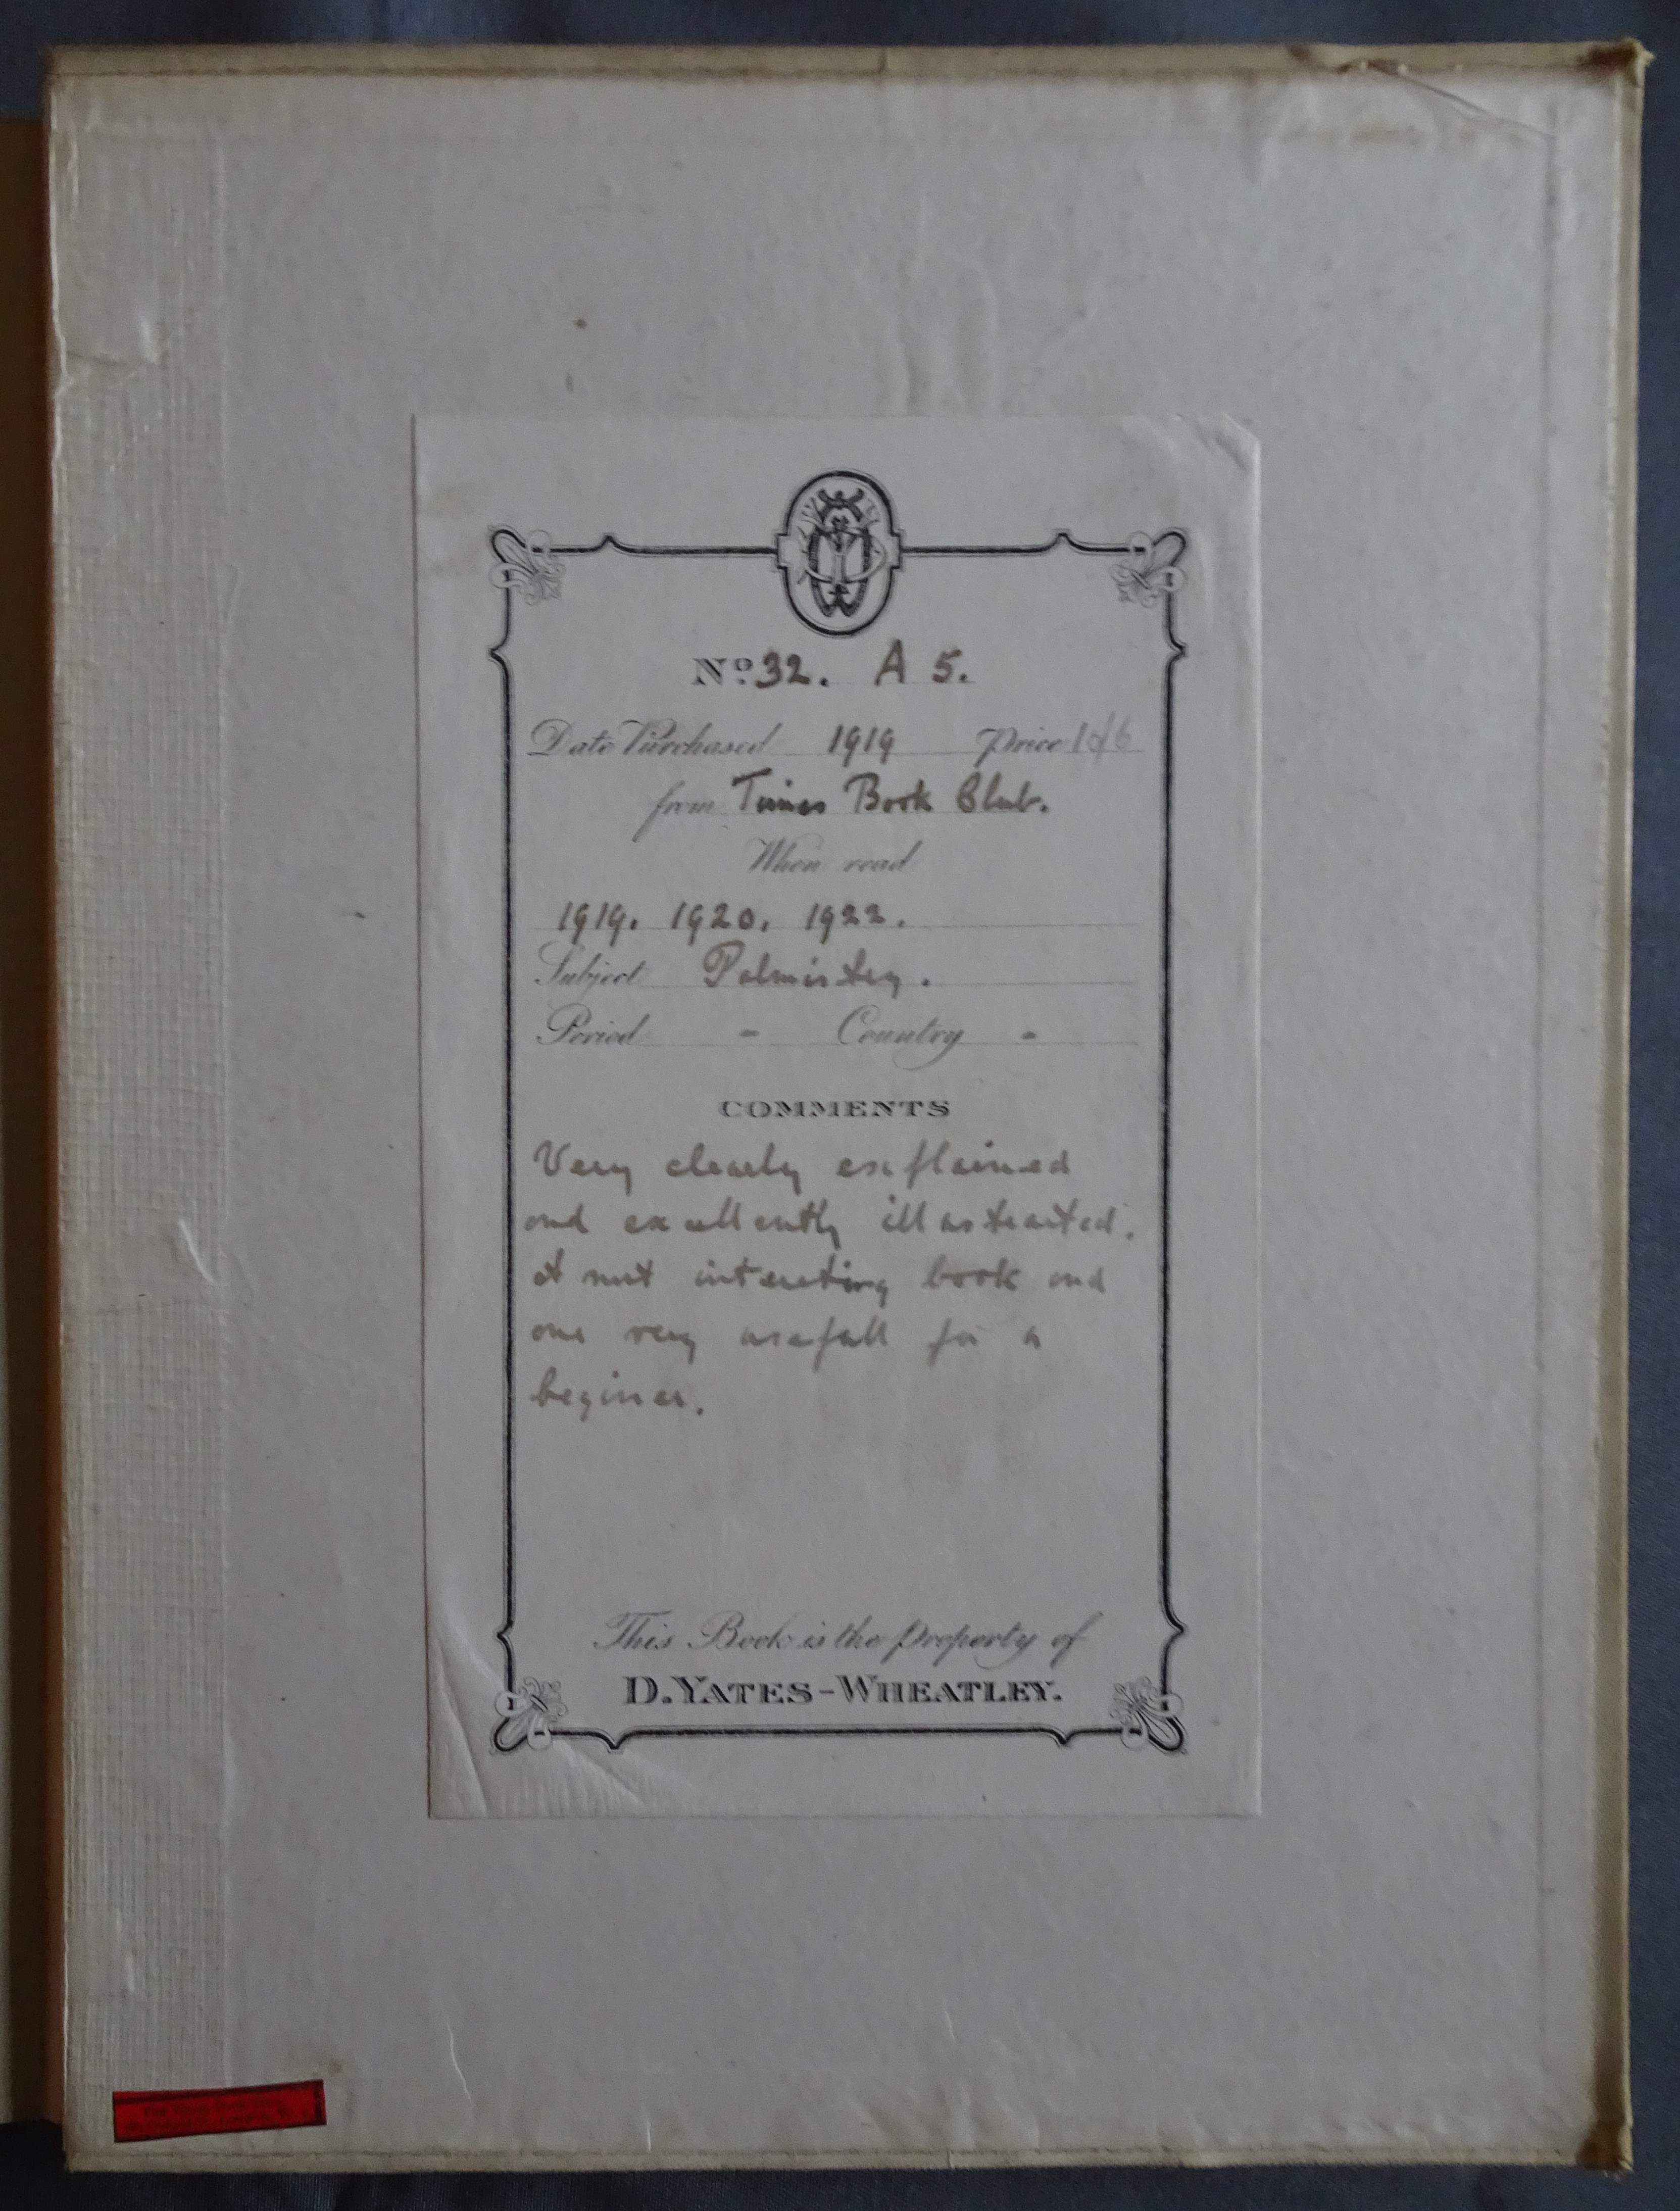 No. 32. A 5.
Date Purchased 1919 Price
from Times Book Club.
When read
1919. 1920. 1922.
Subject Palmistry.
Period - Country -
COMMENTS
Very clearly explained
and excellently illustrated.
A most interesting book and
one very usefull for a
beginer.
This Book is the Property of
D. YATES-WHEATLEY.